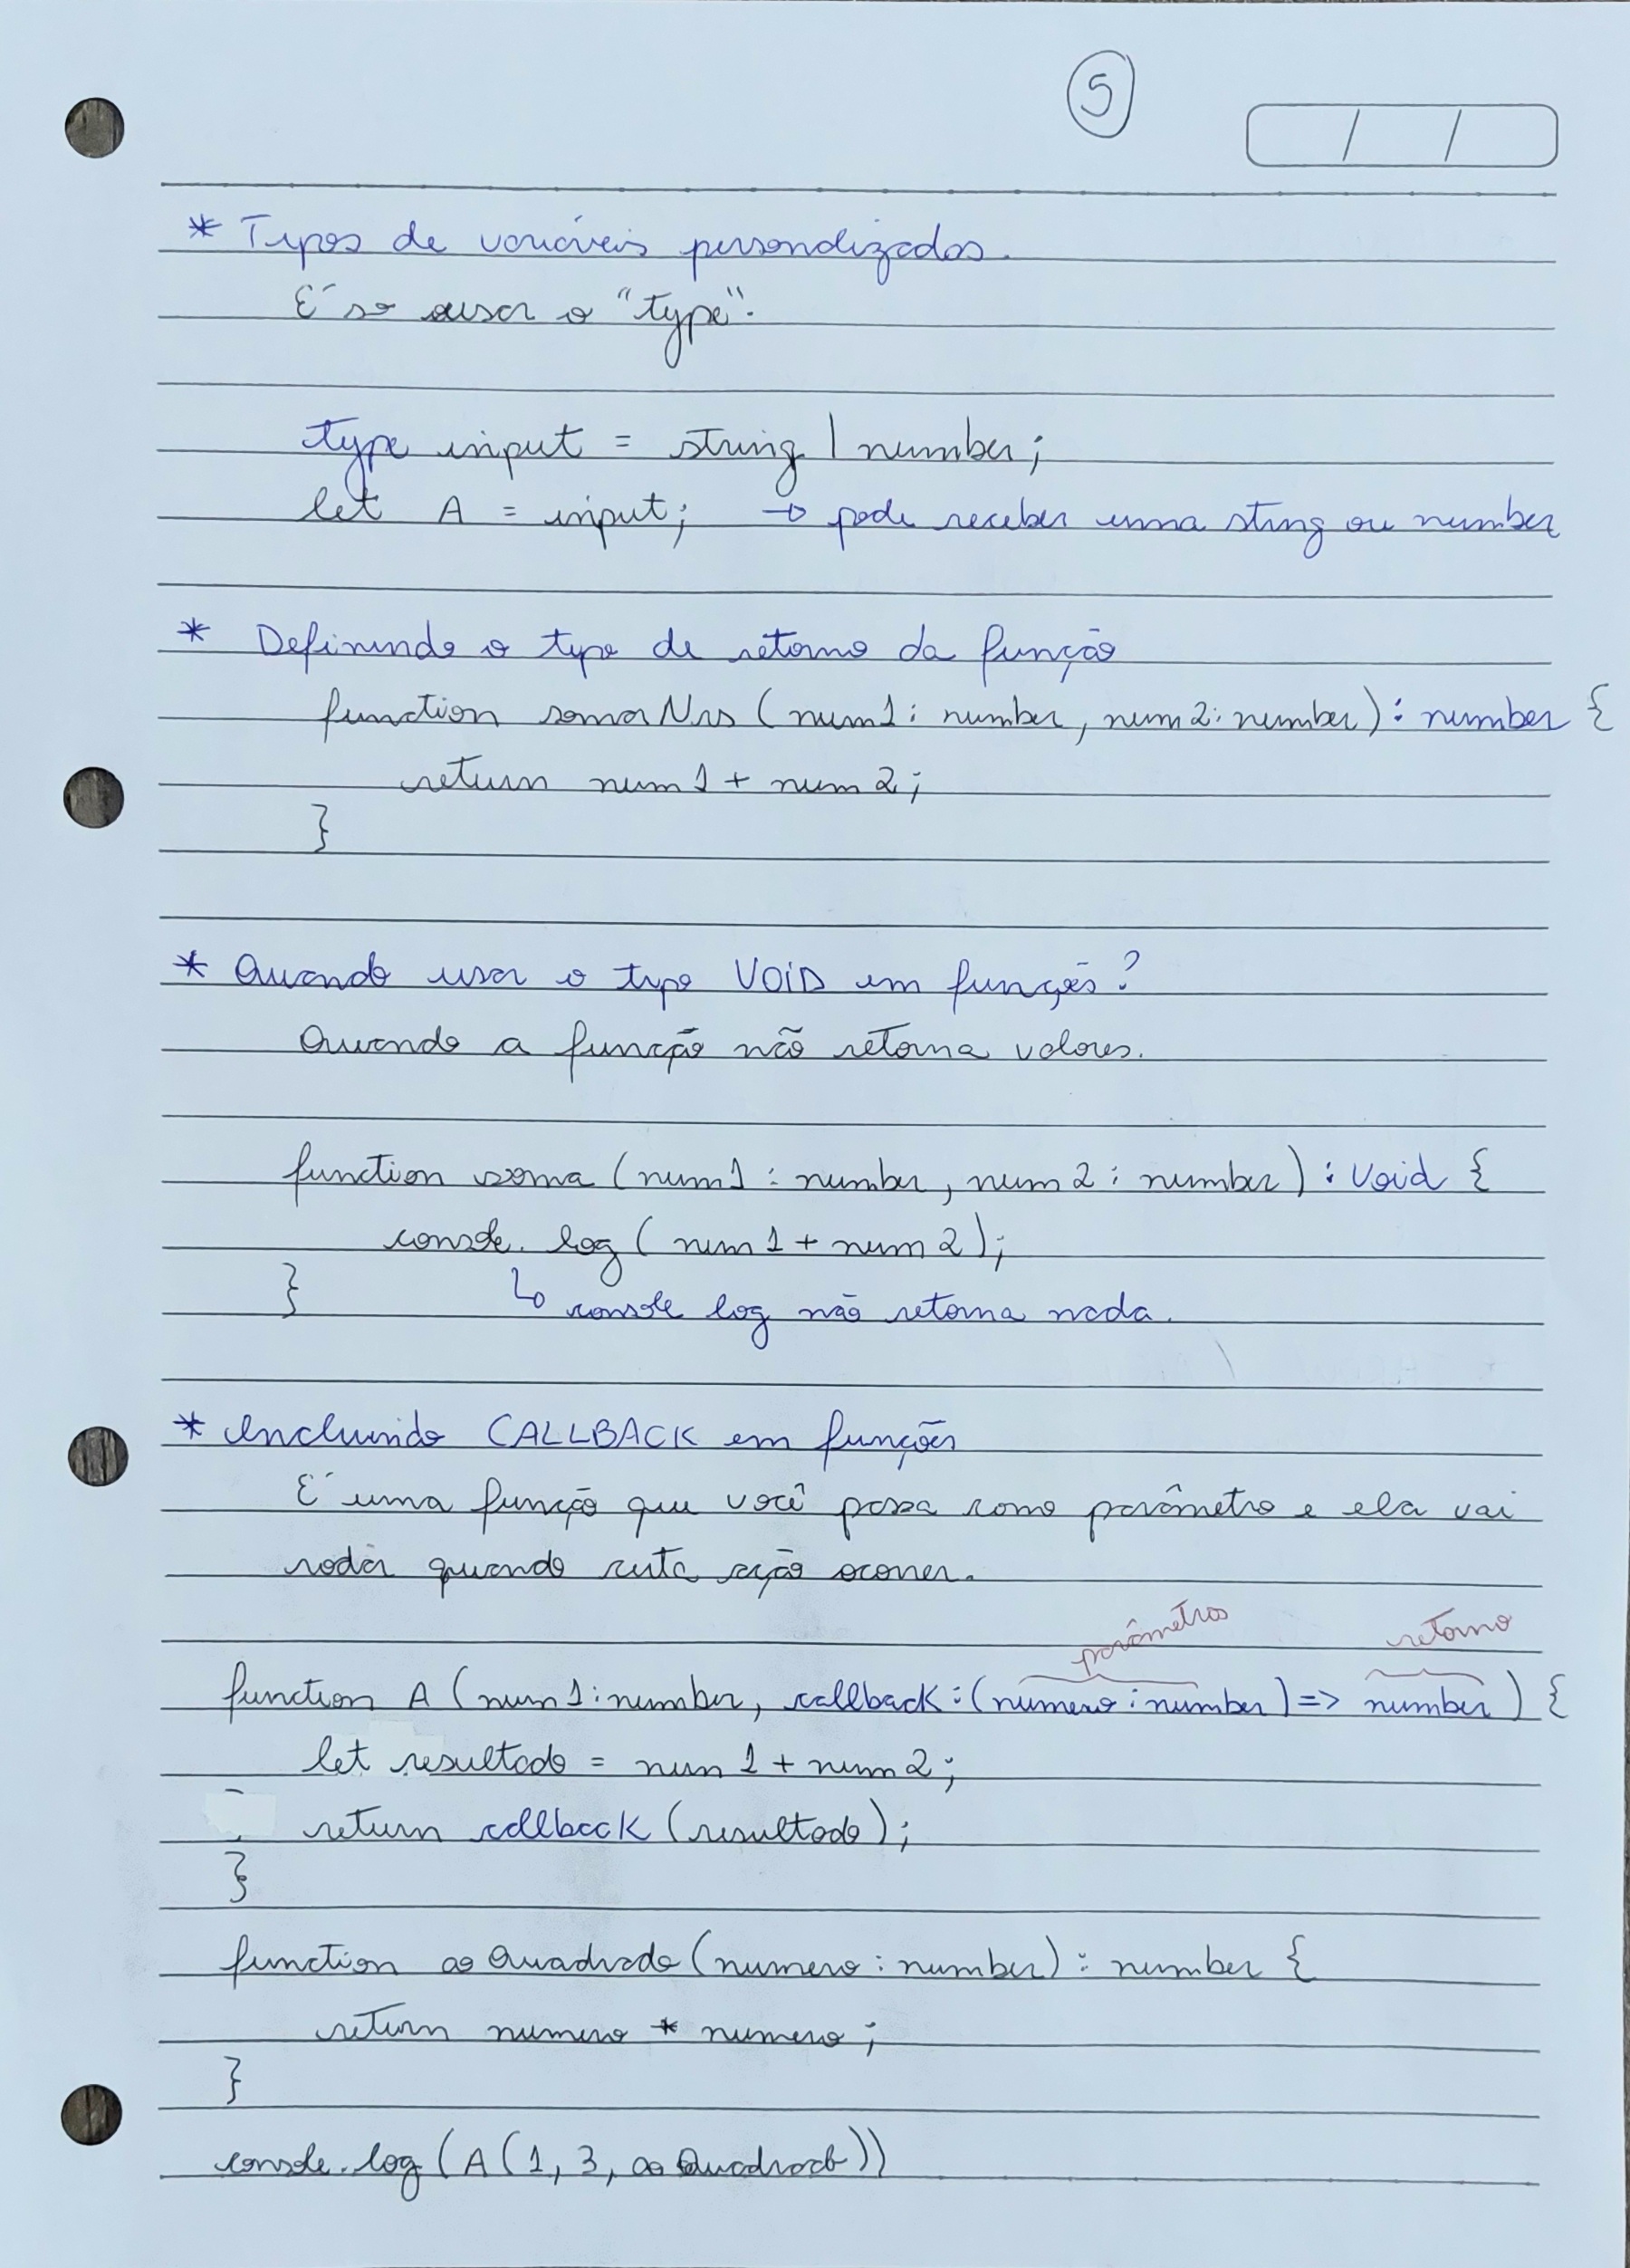 5
/ /
* Tipos de variáveis personalizados.
É só usar o "type".
type input = string | number;
let A = input; → pode receber uma string ou number
* Definindo o tipo de retorno da função
function somaNrs (num1: number, num2: number): number {
return num1 + num2;
}
* Quando usar o tipo VOID em funções?
Quando a função não retorna valores.
function soma (num1: number, num2: number): void {
console.log (num1 + num2);
} ↳ console log não retorna nada.
* Incluindo CALLBACK em funções
É uma função que você passa como parâmetro e ela vai
rodar quando certa ação ocorrer.
parâmetros retorno
function A (num1: number, callback: (numero: number) => number) {
let resultado = num1 + num2;
return callback (resultado);
}
function aoQuadrado (numero: number): number {
return numero * numero;
}
console.log (A (1, 3, aoQuadrado))